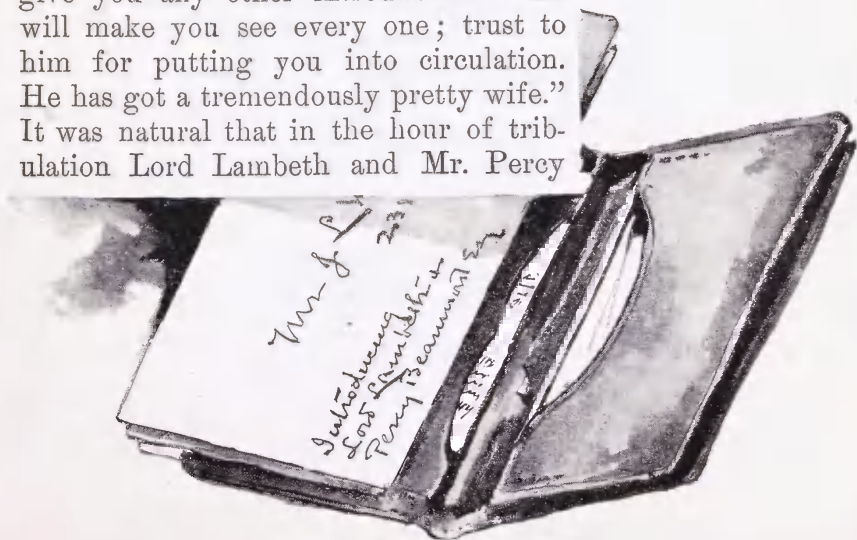 give you any other
will make you see every one; trust to
him for putting you into circulation.
He has got a tremendously pretty wife.”
It was natural that in the hour of trib-
ulation Lord Lambeth and Mr. Percy
Mr J
Introducing
Lord Lambeth &
Percy Beaumont Esq